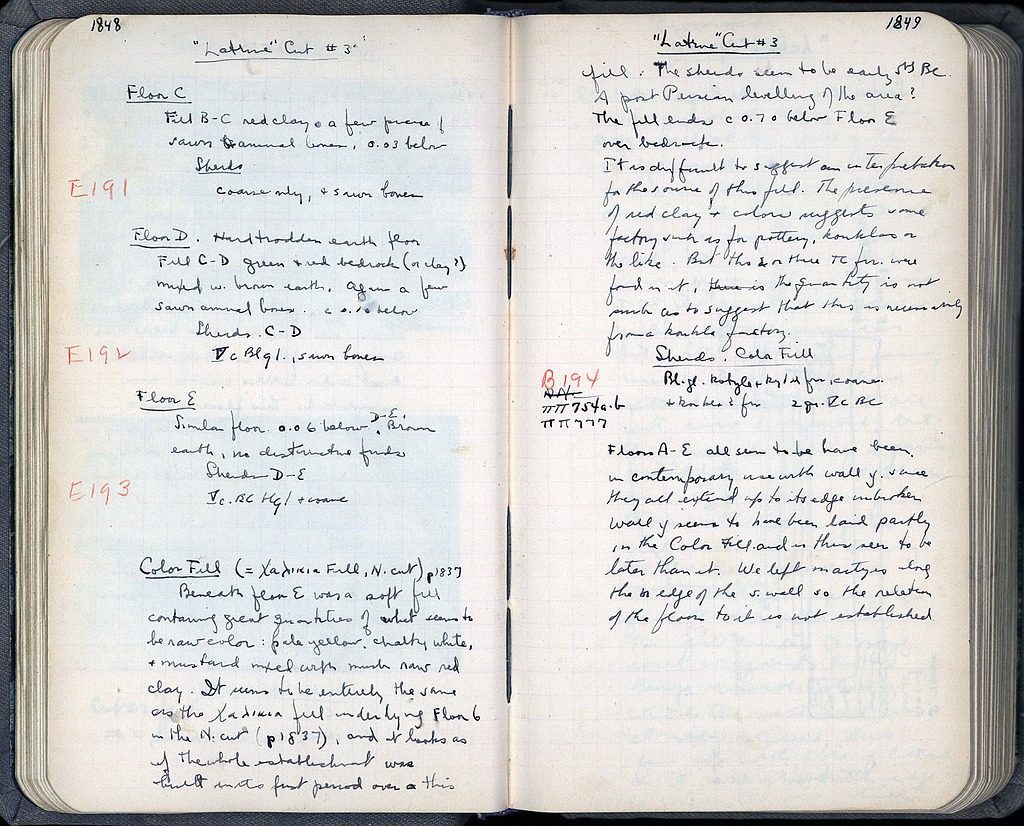 1848
"Latrine" Cut #3
Floor C
Fill B-C red clay & a few pieces of
sawn animal bones, 0.03 below
Sherds
E191
coarse only, + sawn bones
Floor D. Hard trodden earth floor
Fill C-D green + red bedrock (or clay?)
mixed w. brown earth, again a few
sawn animal bones. c 0.10 below
Sherds. C-D
E192
V c Bl gl., sawn bones
Floor E
Similar floor. 0.06 below D-E. Brown
earth, no distinctive finds
Sherds D-E
E193
V c. BC Bl gl + coarse
Color Fill (= Χαλικια Fill, N. cut) p1837
Beneath floor E was a soft fill
containing great quantities of what seems to
be raw color: pale yellow, chalky white,
+ mustard mixed with much raw red
clay. It seems to be entirely the same
as the Χαλικια fill underlying Floor 6
in the N. cut (p1837), and it looks as
if the whole establishment was
built in its first period over a this
1849
"Latrine" Cut #3
fill. The sherds seem to be early 5th BC.
A post Persian levelling of the area?
The fill ends c 0.70 below Floor E
over bedrock.
It is difficult to suggest an interpretation
for the source of this fill. The presence
of red clay + colors suggests some
factory such as for pottery, kouklas or
the like. But tho 2 or three TC frr. were
found in it, there is the quantity is not
such as to suggest that this is necessarily
from a koukla factory.
Sherds. Color Fill
B194
Bl. gl. kotyle + kylix frr, coarse
+ koukla? fr 2 qr. V c BC
ΠΠ 754a-b
ΠΠ 777
Floors A-E all seem to have been
in contemporary use with wall y, since
they all extend up to its edge unbroken
Wall y seems to have been laid partly
in the Color Fill and is thus seen to be
later than it. We left martyrs along
the N edge of the S. wall so the relation
of the floors to it is not established